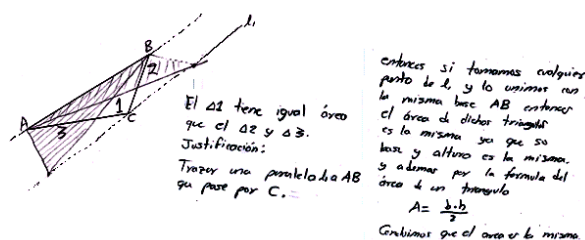 l₁
B
2
1
A
C
3
El Δ1 tiene igual área
que el Δ2 y Δ3.
Justificación:
Trazar una paralela l a AB
que pase por C.
entonces si tomamos cualquier
punto de l, y lo unimos con
la misma base AB entonces
el área de dichos triangulos
es la misma ya que su
base y altura es la misma.
y ademas por la formula del
área de un triangulo
A= b·h/2
Concluimos que el area es la misma.